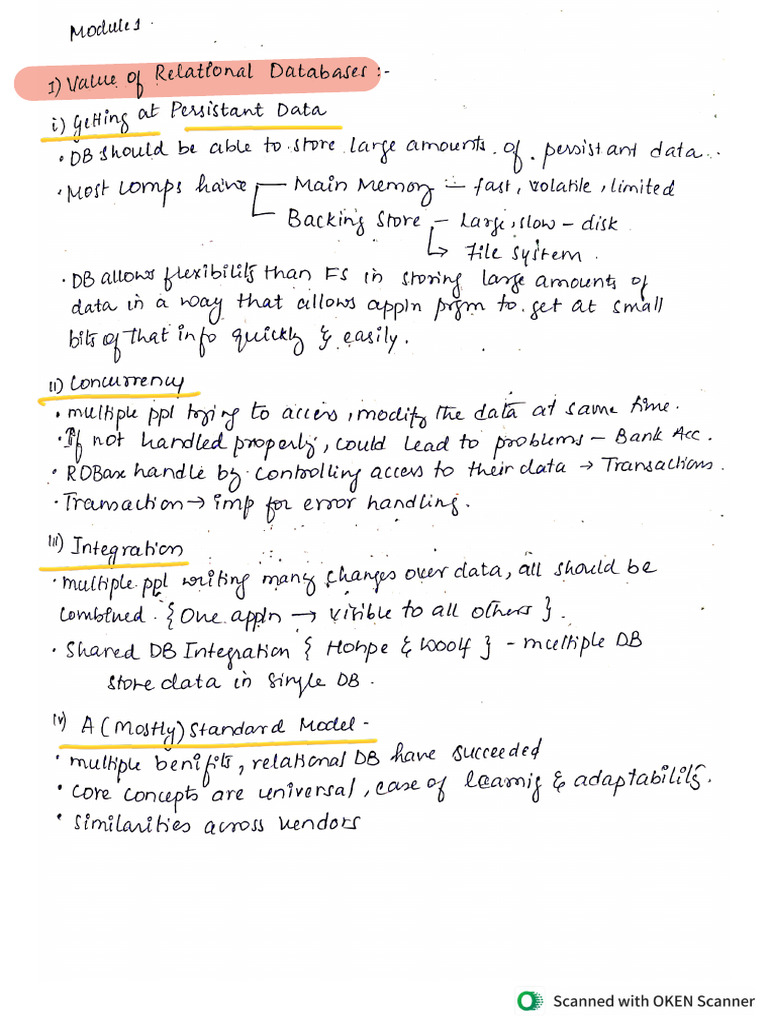 Module 1.
1) Value of Relational Databases :-
i) Getting at Persistant Data
• DB should be able to store large amounts of persistant data.
• Most comps have — Main Memory — fast, volatile, limited
Backing Store — Large, slow – disk
↳ File System.
• DB allows flexibility than FS in storing large amounts of
data in a way that allows appln prgm to get at small
bits of that info quickly & easily.
ii) Concurrency
• multiple ppl trying to access, modify the data at same time.
• If not handled properly, could lead to problems – Bank Acc.
• handle by controlling access to their data → Transactions.
• Transaction → imp for error handling.
iii) Integration
• multiple ppl writing many changes over data, all should be
combined. {One appln → visible to all others}.
• Shared DB Integration {Hohpe & Woolf} – multiple DB
store data in single DB.
iv) A (Mostly) Standard Model -
• multiple benifits, relational DB have succeeded
• core concepts are universal, ease of learnig & adaptability.
• Similarities across vendors
Scanned with OKEN Scanner